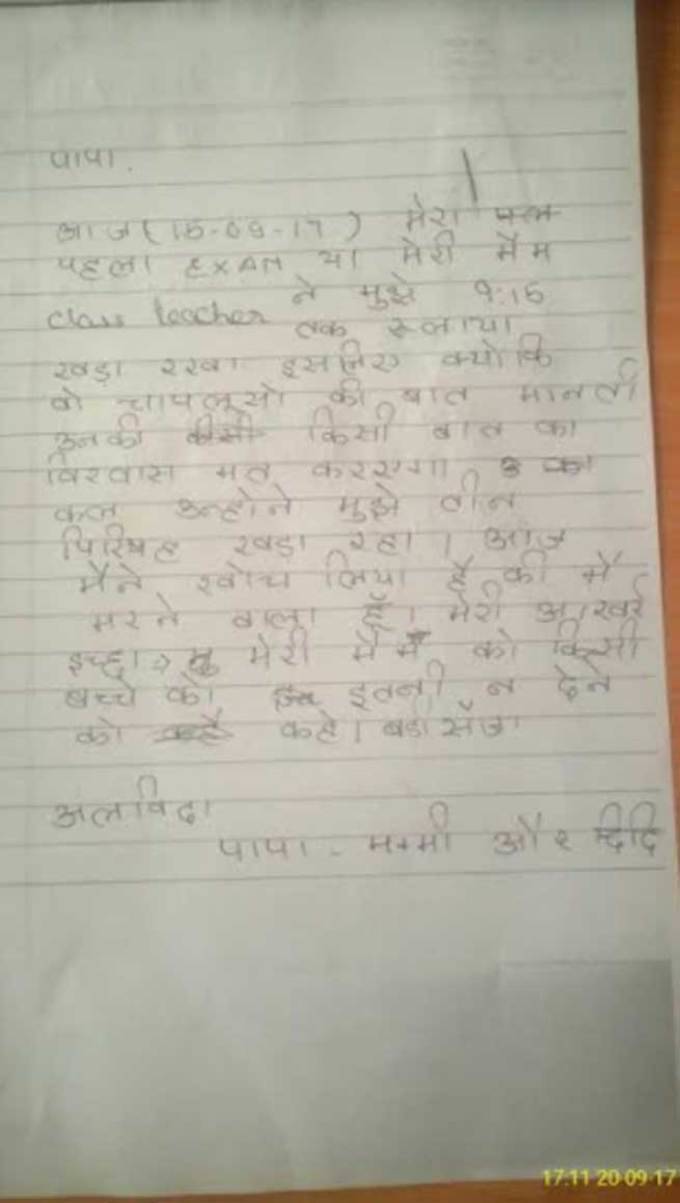 पापा.
आज (15-09-17) मेरा
पहला EXAM था मेरी मैम
class teacher ने मुझे 9:15
तक रूलाया
खड़ा रखा इसलिए क्योकि
वो चापलूसो की बात मानती
उनकी किसी बात का
विश्वास मत करएगा
कल उन्होने मुझे तीन
पिरियड खड़ा रहा। आज
मैने सोच लिया है की मैं
मरने वाला हूँ। मेरी आखरी
इच्छा मेरी मैम को किसी
बच्चे को इतनी न देने
को कहे। बड़ी सजा
अलविदा
पापा - मम्मी और दिदि
17:11 20·09·17